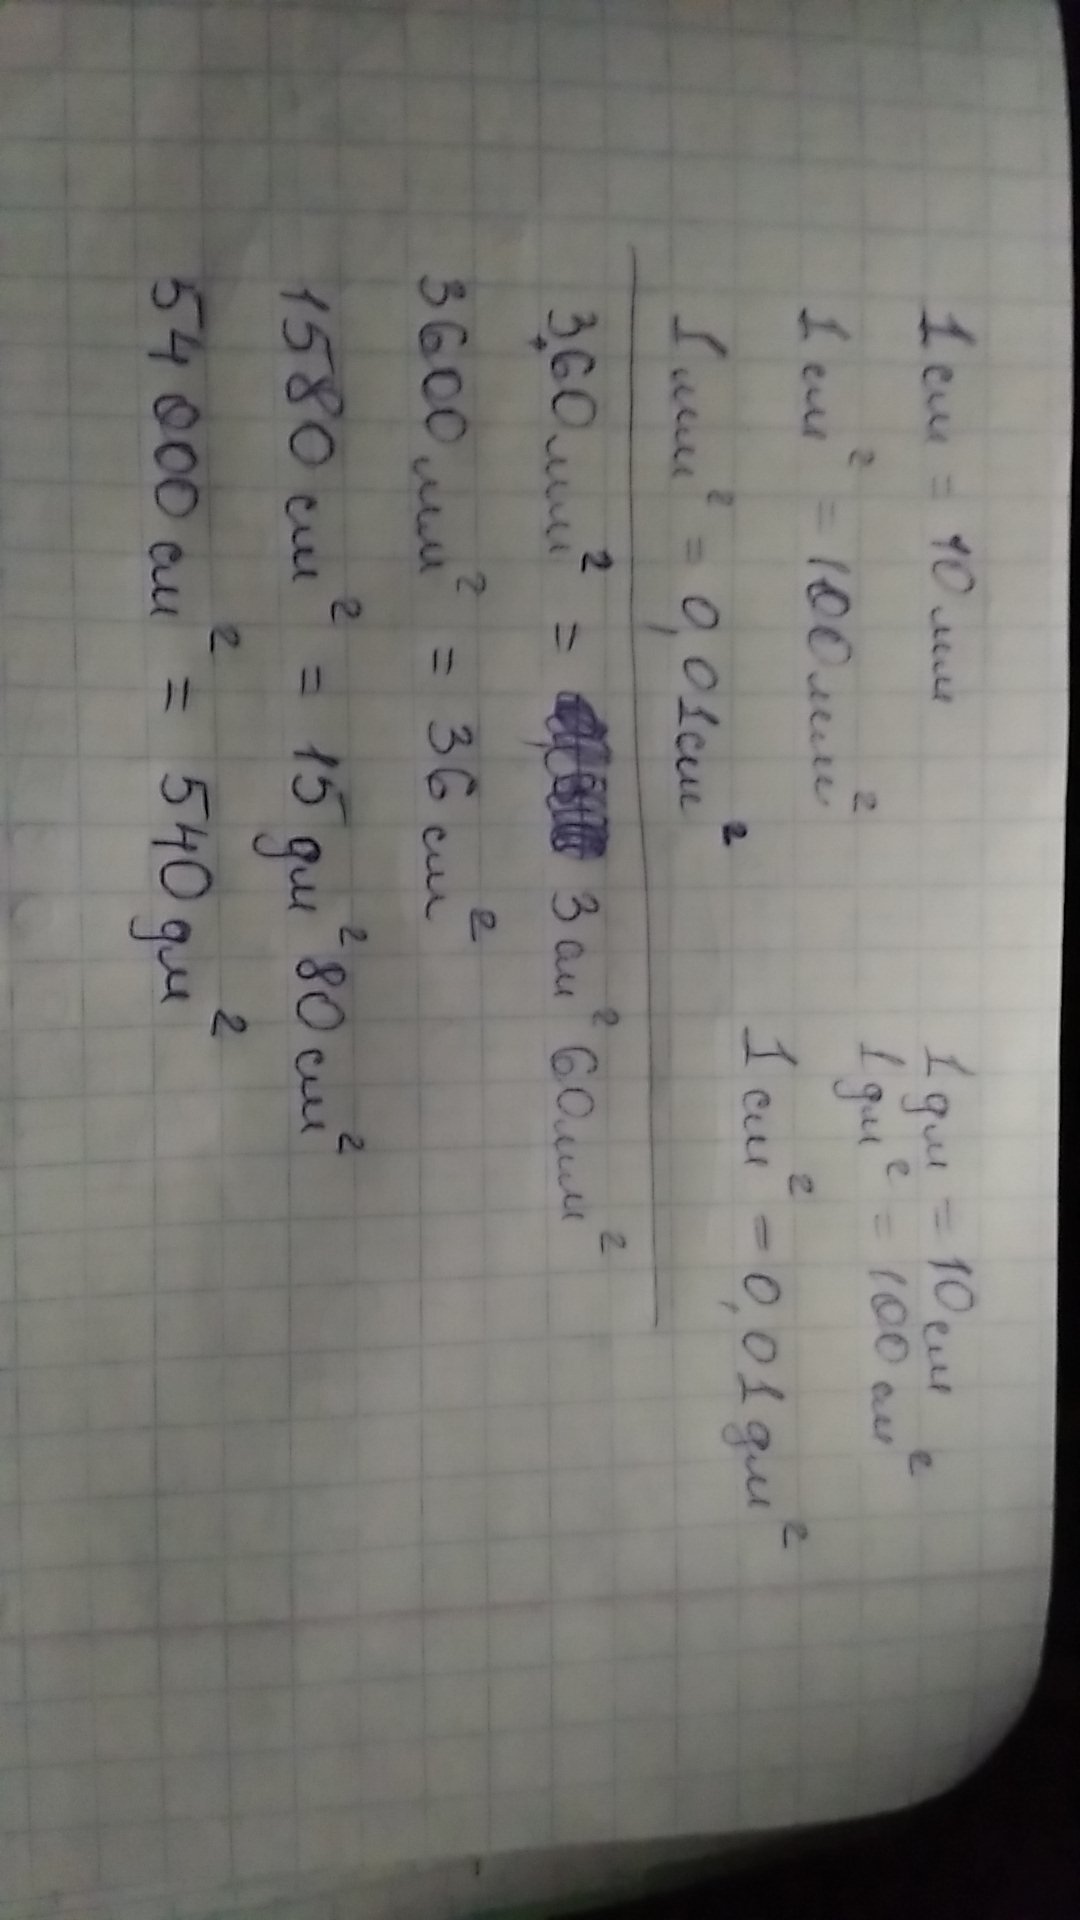 1 см = 10 мм
1 см² = 100 мм²
1 мм² = 0,01 см²
1 дм = 10 см
1 дм² = 100 см²
1 см² = 0,01 дм²
360 мм² = 3 см² 60 мм²
3600 мм² = 36 см²
1580 см² = 15 дм² 80 см²
54 000 см² = 540 дм²